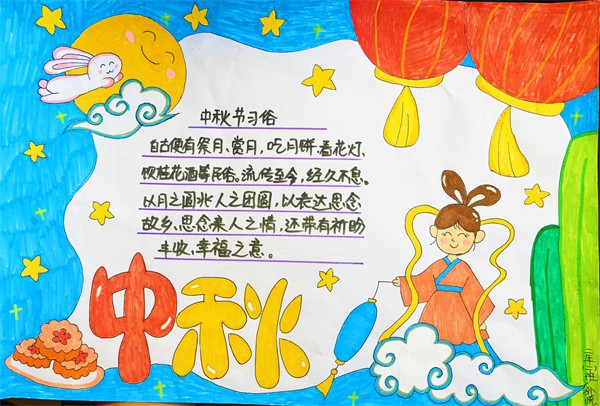 中秋节习俗
自古便有祭月、赏月、吃月饼、看花灯、
饮桂花酒等民俗。流传至今,经久不息。
以月之圆兆人之团圆,以寄托思念
故乡、思念亲人之情,还带有祈盼
丰收、幸福之意。
中秋